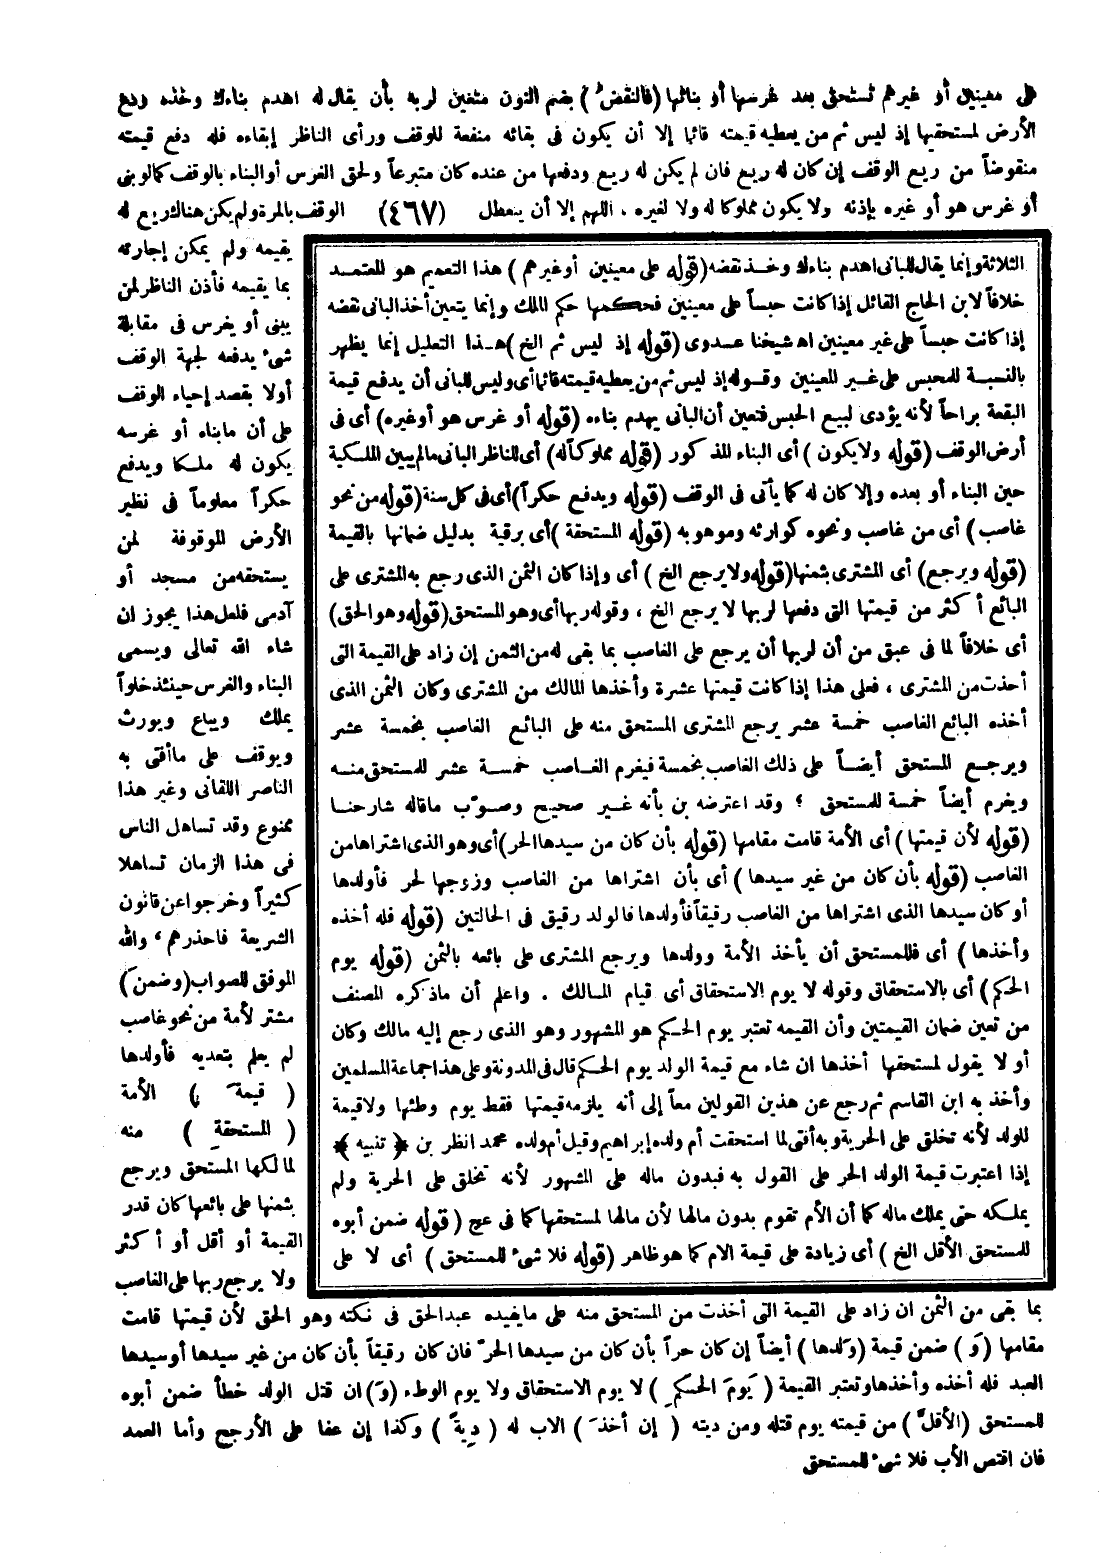 على معينين أو غيرهم تستحق بعد غرسها أو بنائها (فالنقض) بضم النون متعين لربه بأن يقال له اهدم بناءك وخذه ودع
الأرض لمستحقها إذ ليس ثم من يعطيه قيمته قائما إلا أن يكون فى بقائه منفعة للوقف ورأى الناظر إبقاءه فله دفع قيمته
منقوضاً من ريع الوقف إن كان له ريع فان لم يكن له ريع ودفعها من عنده كان متبرعاً ولحق الغرس أوالبناء بالوقف كمالوبنى
أو غرس هو أو غيره بإذنه ولا يكون مملوكا له ولا لغيره ، اللهم إلا أن يتعطل (٤٦٧) الوقف بالمرة ولم يكن هناك ريع له
يقيمه ولم يمكن إجارته
بما يقيمه فأذن الناظر لمن
يبنى أو يغرس فى مقابلة
شىء يدفعه لجهة الوقف
أولا بقصد إحياء الوقف
على أن مابناه أو غرسه
يكون له ملكا ويدفع
حكراً معلوماً فى نظير
الأرض للموقوفة لمن
يستحقه من مسجد أو
آدمى فلعل هذا يجوز ان
شاء الله تعالى ويسمى
البناء والغرس حينئذ خلواً
يملك ويباع ويورث
ويوقف على ماأفتى به
الناصر اللقانى وغير هذا
ممنوع وقد تساهل الناس
فى هذا الزمان تساهلا
كثيراً وخرجوا عن قانون
الشريعة فاحذرهم ، والله
الموفق للصواب (وضمن)
مشتر لأمة من نحو غاصب
لم يعلم بتعديه فأولدها
( قيمةَ ) الأمة
( المستحقةِ ) منه
لمالكها المستحق ويرجع
بثمنها على بائعها كان قدر
القيمة أو أقل أو أكثر
ولا يرجع ربها على الغاصب
الثلاثة وإنما يقال للبانى اهدم بناءك وخذ نقضه (قوله على معينين أوغيرهم ) هذا التعميم هو المعتمد
خلافاً لابن الحاج القائل إذا كانت حبساً على معينين فحكمها حكم الملك وإنما يتعين أخذ البانى نقضه
إذا كانت حبساً على غير معينين اه شيخنا عدوى (قوله إذ ليس ثم الخ) هذا التعليل إنما يظهر
بالنسبة للمحبس على غير المعينين وقوله إذ ليس ثم من يعطيه قيمته قائما أى وليس للبانى أن يدفع قيمة
البقعة براحاً لأنه يؤدى لبيع الحبس فتعين أن البانى يهدم بناءه (قوله أو غرس هو أوغيره) أى فى
أرض الوقف (قوله ولا يكون ) أى البناء المذكور (قوله مملوكاً له) أى للناظر البانى مالم يبين الملكية
حين البناء أو بعده وإلا كان له كما يأتى فى الوقف (قوله ويدفع حكراً) أى فى كل سنة (قوله من نحو
غاصب ) أى من غاصب ونحوه كوارثه وموهوبه (قوله المستحقة ) أى برقية بدليل ضمانها بالقيمة
(قوله ويرجع) أى المشترى بثمنها (قوله ولا يرجع الخ ) أى وإذا كان الثمن الذى رجع به المشترى على
البائع أكثر من قيمتها التى دفعها لربها لا يرجع الخ ، وقوله ربها أى وهو المستحق (قوله وهو الحق)
أى خلافاً لما فى عبق من أن لربها أن يرجع على الغاصب بما بقى له من الثمن إن زاد على القيمة التى
أخذت من المشترى ، فعلى هذا إذا كانت قيمتها عشرة وأخذها المالك من المشترى وكان الثمن الذى
أخذه البائع الغاصب خمسة عشر يرجع المشترى المستحق منه على البائع الغاصب بخمسة عشر
ويرجع المستحق أيضاً على ذلك الغاصب بخمسة فيغرم الغاصب خمسة عشر للمستحق منه
ويغرم أيضاً خمسة للمستحق ؛ وقد اعترضه بن بأنه غير صحيح وصوّب ماقاله شارحنا
(قوله لأن قيمتها ) أى الأمة قامت مقامها (قوله بأن كان من سيدها الحر) أى وهو الذى اشتراها من
الغاصب (قوله بأن كان من غير سيدها ) أى بأن اشتراها من الغاصب وزوجها لحر فأولدها
أو كان سيدها الذى اشتراها من الغاصب رقيقاً فأولدها فالولد رقيق فى الحالتين (قوله فله أخذه
وأخذها ) أى فللمستحق أن يأخذ الأمة وولدها ويرجع المشترى على بائعه بالثمن (قوله يوم
الحكم) أى بالاستحقاق وقوله لا يوم الاستحقاق أى قيام المالك . واعلم أن ماذكره المصنف
من تعين ضمان القيمتين وأن القيمه تعتبر يوم الحكم هو المشهور وهو الذى رجع إليه مالك وكان
أو لا يقول لمستحقها أخذها ان شاء مع قيمة الولد يوم الحكم قال فى المدونة وعلى هذا جماعة المسلمين
وأخذ به ابن القاسم ثم رجع عن هذين القولين معاً إلى أنه يلزمه قيمتها فقط يوم وطئها ولاقيمة
للولد لأنه تخلق على الحرية وبه أفتى لما استحقت أم ولده إبراهيم وقيل أم ولده محمد انظر بن ﴿ تنبيه ﴾
إذا اعتبرت قيمة الولد الحر على القول به فبدون ماله على المشهور لأنه تخلق على الحرية ولم
يملكه حتى يملك ماله كما أن الأم تقوم بدون مالها لأن مالها لمستحقها كما فى عج (قوله ضمن أبوه
للمستحق الأقل الخ ) أى زيادة على قيمة الام كما هو ظاهر (قوله فلا شىء للمستحق ) أى لا على
بما بقى من الثمن ان زاد على القيمة التى أخذت من المستحق منه على مايفيده عبدالحق فى نكته وهو الحق لأن قيمتها قامت
مقامها (وَ) ضمن قيمة (ولدها ) أيضاً إن كان حراً بأن كان من سيدها الحرّ فان كان رقيقاً بأن كان من غير سيدها أوسيدها
العبد فله أخذه وأخذها وتعتبر القيمة ( يومَ الحكمِ ) لا يوم الاستحقاق ولا يوم الوطء (وَ) ان قتل الولد خطأ ضمن أبوه
للمستحق (الأقلَّ) من قيمته يوم قتله ومن ديته ( إن أخذَ ) الاب له ( ديةً ) وكذا إن عفا على الأرجح وأما العمد
فان اقتص الأب فلا شىء للمستحق